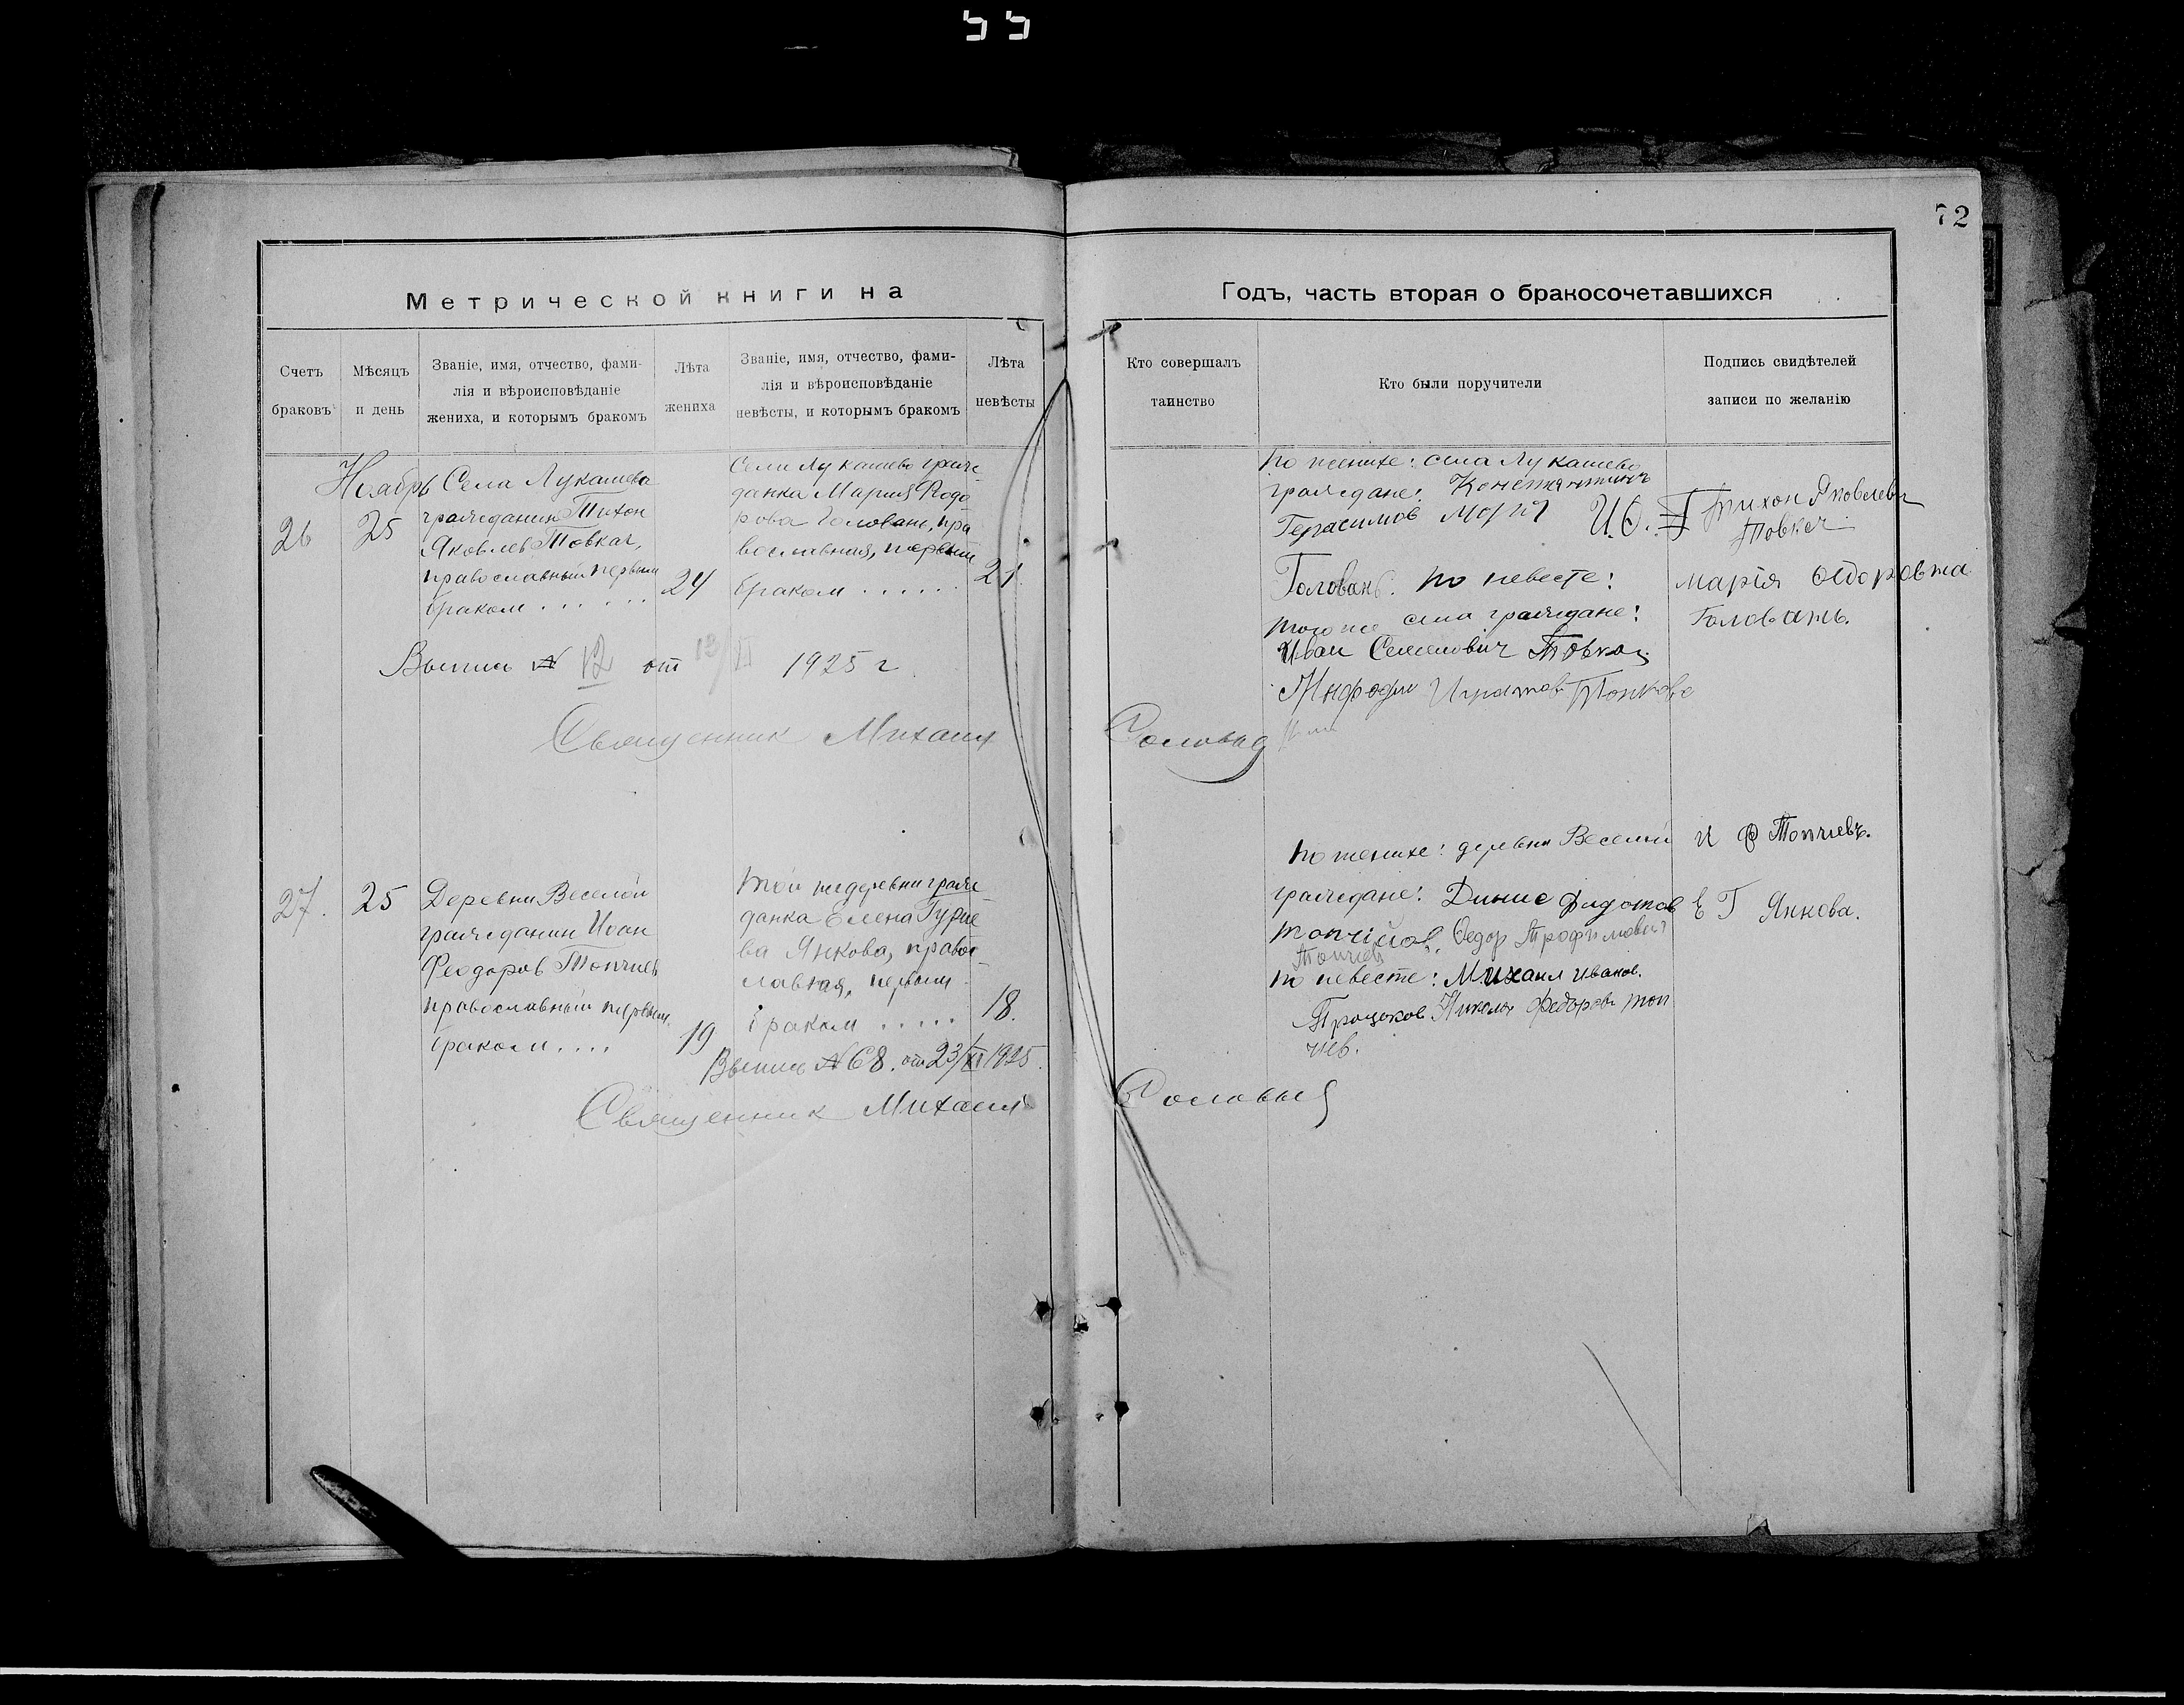 72
Метрической книги на
Годъ, часть вторая о бракосочетавшихся
Счетъ
браковъ
Мѣсяцъ
и день
Званіе, имя, отчество, фами-
лія и вѣроисповѣданіе
жениха, и которымъ бракомъ
Лѣта
жениха
Званіе, имя, отчество, фами-
лія и вѣроисповѣданіе
невѣсты, и которымъ бракомъ
Лѣта
невѣсты
Кто совершалъ
таинство
Кто были поручители
Подпись свидѣтелей
записи по желанію
Ноябрь
26
25
Села Лукашева
гражданин Тихон
Яковлев Товкач,
православный первым
браком . . . . . .
24
Села Лукашево граж
данка Мария Ѳедо
рова Головань, пра
вославная, первым
браком . . . . .
21
Выпись № 12 от 13/XI 1925 г
Священник Михаил Соловьев
по женихе: села Лукашево
граждане: Константинъ
Герасимов
И.Ѳ.
Головань. по невесте:
того же села граждане:
Иван Семенович Товкач
Тихон Яковлевич
Товкач
Марія Ѳедоровна
Головань.
27.
25
Деревни Веселой
гражданин Иван
Феодоров Топчиев
православный первым
браком . . . .
19
той же деревни граж
данка Елена Гурие
ва Янкова, правос
лавная, первым
браком . . . . .
18.
Выпись № 68. от 23/XI 1925.
Священник Михаил Соловьев
по женихе: деревни Веселой
граждане: Динис Фидотов
топчійов, Ѳедор Трофимович
Топчиев
по невесте: Михаил Иванов.
Троцоков Николай Федоров топ
чиев.
И Ф Топчиевъ.
Е Г Янкова.